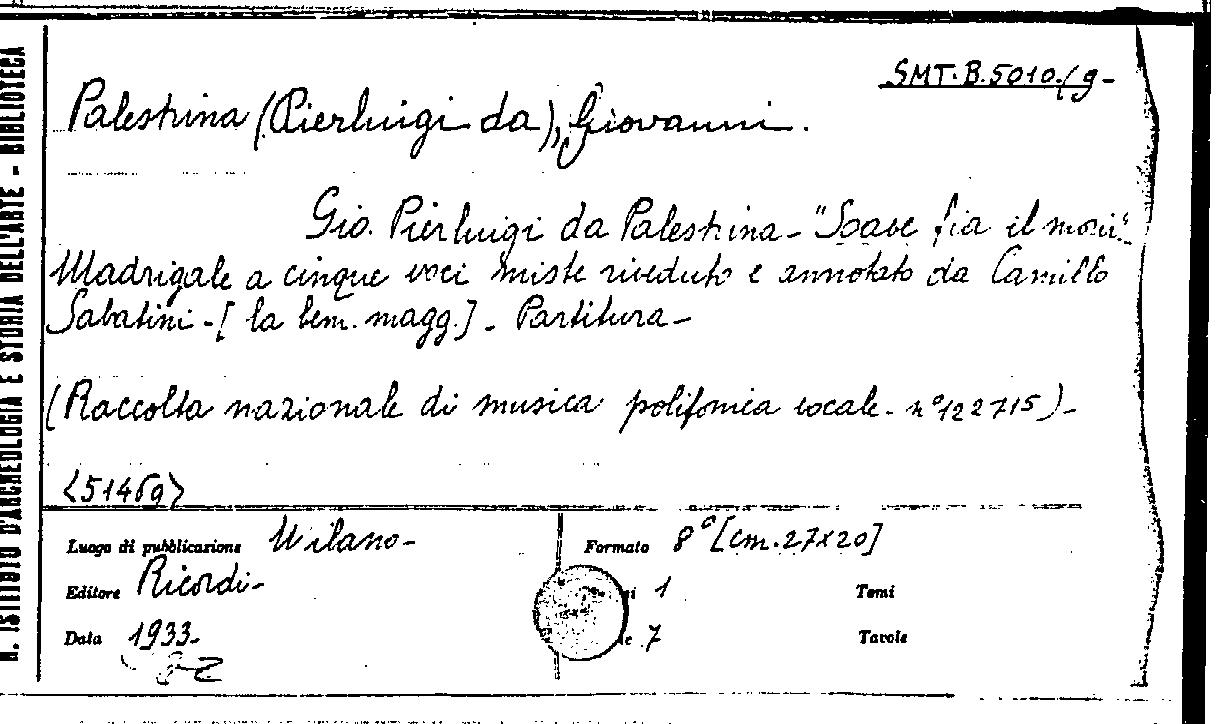 SMT.B.5010/g-
Palestrina (Pierluigi da), Giovanni.
Gio. Pierluigi da Palestrina - "Soave fia il morir"
Madrigale a cinque voci miste riveduto e annotato da Camillo
Sabatini - [la bem. magg.] - Partitura -
(Raccolta nazionale di musica polifonica vocale - n° 122715) -
<5146g>
Luogo di pubblicazione Milano -
Formato 8° [cm. 27x20]
Editore Ricordi -
1
Tomi
Data 1933 -
7
Tavole
R. ISTITUTO D'ARCHEOLOGIA E STORIA DELL'ARTE - BIBLIOTECA